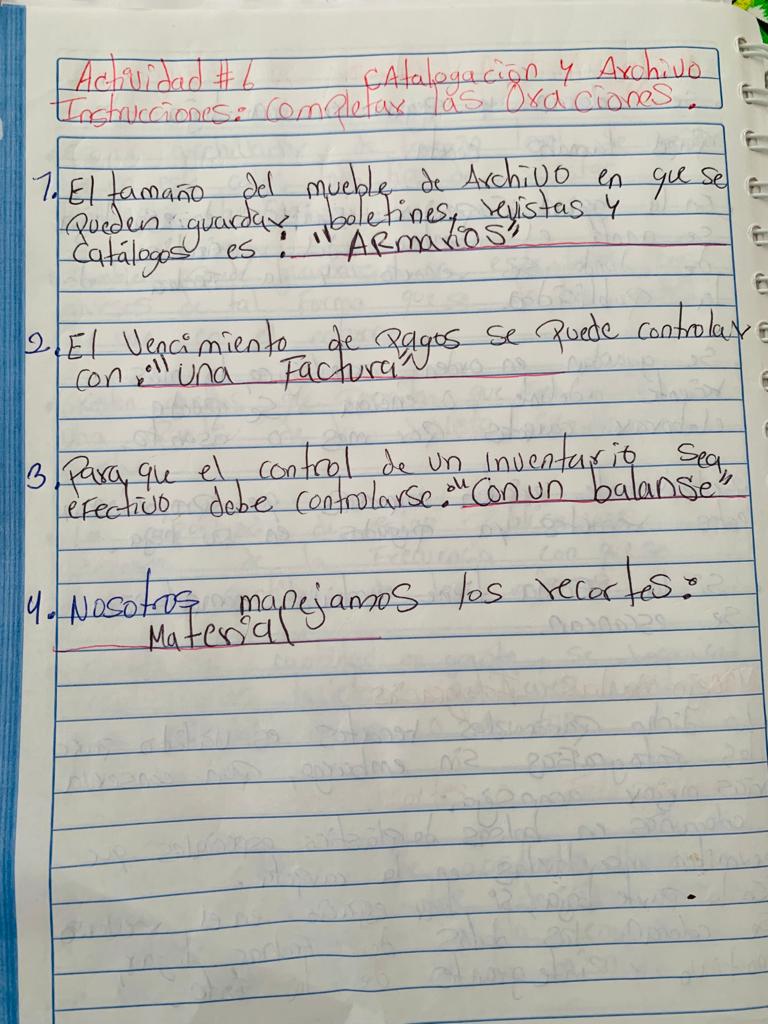 Actividad #6 CAtalogación y Archivo
Instrucciones: Completar las Oraciones.
1. El tamaño del mueble de Archivo en que se
pueden guardar boletines, revistas y
Catálogos es: "ARmarios"
2. El Vencimiento de pagos se puede controlar
con: "una Factura"
3. Para que el control de un inventario sea
efectivo debe controlarse: "Con un balanse"
4. Nosotros manejamos los recortes:
Material